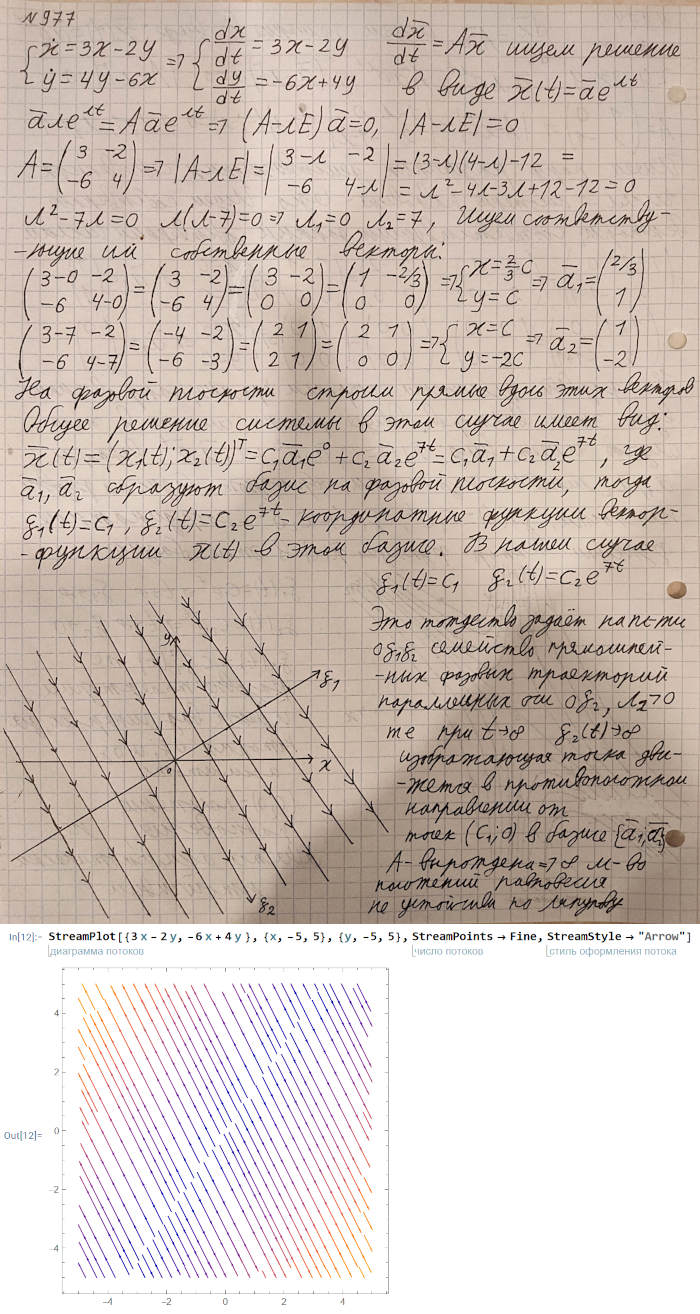 №977
{ẋ = 3x-2y ẏ = 4y-6x => {dx/dt = 3x-2y dy/dt = -6x+4y dx̅/dt = Ax̅ ищем решение
в виде x̅(t) = a̅e^λt
a̅λe^λt = Aa̅e^λt => (A-λE)a̅=0, |A-λE|=0
A = (3 -2 -6 4) => |A-λE| = |3-λ -2 -6 4-λ| = (3-λ)(4-λ)-12 =
= λ²-4λ-3λ+12-12=0
λ²-7λ=0 λ(λ-7)=0 => λ₁=0 λ₂=7, Ищем соответству-
-ющие им собственные векторы:
(3-0 -2 -6 4-0) = (3 -2 -6 4) = (3 -2 0 0) = (1 -2/3 0 0) => {x=2/3c y=c => a̅₁ = (2/3 1)
(3-7 -2 -6 4-7) = (-4 -2 -6 -3) = (2 1 2 1) = (2 1 0 0) => {x=c y=-2c => a̅₂ = (1 -2)
На фазовой плоскости строим прямые вдоль этих векторов
Общее решение системы в этом случае имеет вид:
x̅(t) = (x₁(t); x₂(t))ᵀ = c₁a̅₁e⁰ + c₂a̅₂e^7t = c₁a̅₁ + c₂a̅₂e^7t, где
a̅₁, a̅₂ образуют базис на фазовой плоскости, тогда
ξ₁(t)=c₁, ξ₂(t)=c₂e^7t - координатные функции вектор-
-функции x̅(t) в этом базисе. В нашем случае
ξ₁(t)=c₁ ξ₂(t)=c₂e^7t
Это тождество задаёт на пл-ти
Oξ₁ξ₂ семейство прямолиней-
-ных фазовых траекторий
параллельных оси Oξ₂, λ₂>0
те при t→∞ ξ₂(t)→∞
изображающая точка дви-
-жется в противоположном
направлении от
точек (c₁;0) в базисе {a̅₁,a̅₂}
A - вырождена => ∞ м-во
положений равновесия
не устойчива по Ляпунову
y
ξ₁
0
x
ξ₂
In[12]:= StreamPlot[{3 x - 2 y, -6 x + 4 y }, {x, -5, 5}, {y, -5, 5}, StreamPoints → Fine, StreamStyle → "Arrow"]
диаграмма потоков число потоков стиль оформления потока
Out[12]=
4
2
0
-2
-4
-4 -2 0 2 4